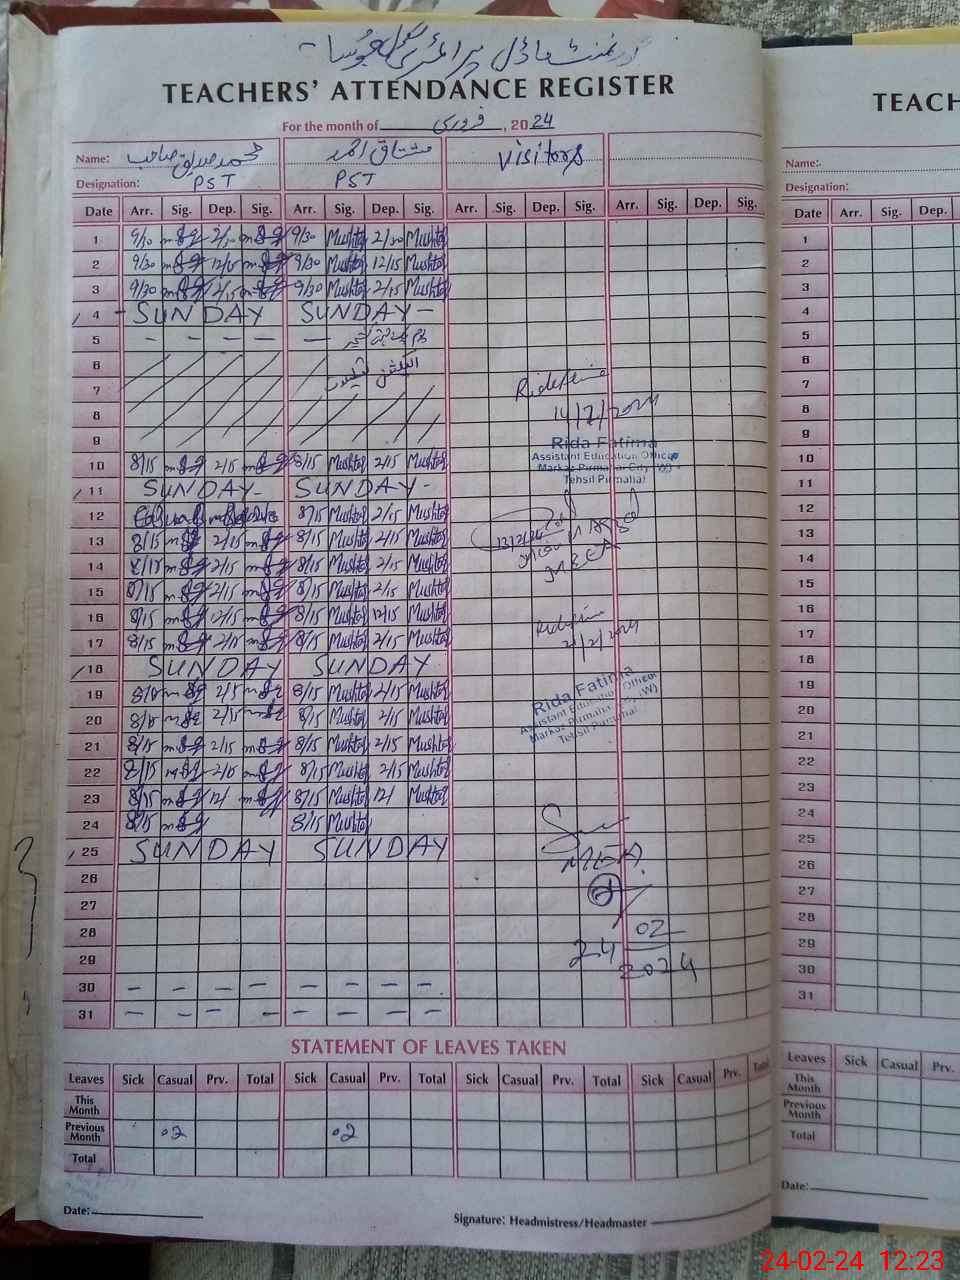 گورنمنٹ ماڈل پرائمری سکول
TEACHERS' ATTENDANCE REGISTER
For the month of فروری , 2024
Name: محمد صدیق صاحب مشتاق احمد Visitors
Designation: PST PST
Date Arr. Sig. Dep. Sig. Arr. Sig. Dep. Sig. Arr. Sig. Dep. Sig. Arr. Sig. Dep. Sig.
1 9/30 9/30 Mushtaq 2/30 Mushtaq
2 9/30 12/15 9/30 Mushtaq 12/15 Mushtaq
3 9/30 2/15 9/30 Mushtaq 2/15 Mushtaq
4 - SUNDAY SUNDAY -
5 - - - - -
6
7
8
9
10 8/15 2/15 8/15 Mushtaq 2/15 Mushtaq
11 SUNDAY - SUNDAY -
12 Casual 8/15 Mushtaq 2/15 Mushtaq
13 8/15 2/15 8/15 Mushtaq 2/15 Mushtaq
14 8/15 2/15 8/15 Mushtaq 2/15 Mushtaq
15 8/15 2/15 8/15 Mushtaq 2/15 Mushtaq
16 8/15 12/15 8/15 Mushtaq 12/15 Mushtaq
17 8/15 2/15 8/15 Mushtaq 2/15 Mushtaq
18 SUNDAY SUNDAY
19 8/15 2/15 8/15 Mushtaq 2/15 Mushtaq
20 8/15 2/15 8/15 Mushtaq 2/15 Mushtaq
21 8/15 2/15 8/15 Mushtaq 2/15 Mushtaq
22 8/15 2/15 8/15 Mushtaq 2/15 Mushtaq
23 8/15 12/ 8/15 Mushtaq 12/ Mushtaq
24 8/15 8/15 Mushtaq
25 SUNDAY SUNDAY
26
27
28
29
30 - - - - - - - -
31 - - - - - - - -
14/2/2024
Rida Fatima
Assistant Education Officer
Markaz Pirmahal City (W)
Tehsil Pirmahal
13/2/24
MEA
21/2/2024
Rida Fatima
Assistant Education Officer
Markaz Pirmahal City (W)
Tehsil Pirmahal
MEA
24 02 2024
STATEMENT OF LEAVES TAKEN
Leaves Sick Casual Prv. Total Sick Casual Prv. Total Sick Casual Prv. Total Sick Casual Prv. Total
This Month
Previous Month 02 02
Total
Date:
Signature: Headmistress/Headmaster
TEACH
Name:
Designation:
Date Arr. Sig. Dep.
1
2
3
4
5
6
7
8
9
10
11
12
13
14
15
16
17
18
19
20
21
22
23
24
25
26
27
28
29
30
31
Leaves Sick Casual Prv.
This Month
Previous Month
Total
Date:
24-02-24 12:23